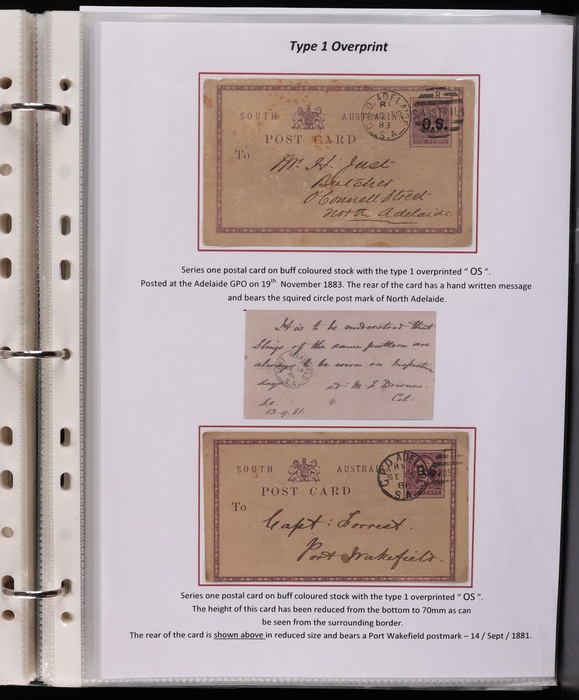 Type 1 Overprint
SOUTH AUSTRALIA
POST CARD
G.P.O. ADELAIDE
83
S.A
O.S.
To
Mr. H. Just
Butcher
O'Connell Street
North Adelaide
Series one postal card on buff coloured stock with the type 1 overprinted " OS ".
Posted at the Adelaide GPO on 19th November 1883. The rear of the card has a hand written message
and bears the squired circle post mark of North Adelaide.
It is to be understood that
Slings of the same pattern are
always to be worn on Inspection
days
Downes
Col:
13.9.81
SOUTH AUSTRALIA
POST CARD
G.P.O ADELAIDE
SE
S.A
O.S.
To
Capt: Forrest.
Port Wakefield.
Series one postal card on buff coloured stock with the type 1 overprinted " OS ".
The height of this card has been reduced from the bottom to 70mm as can
be seen from the surrounding border.
The rear of the card is shown above in reduced size and bears a Port Wakefield postmark – 14 / Sept / 1881.